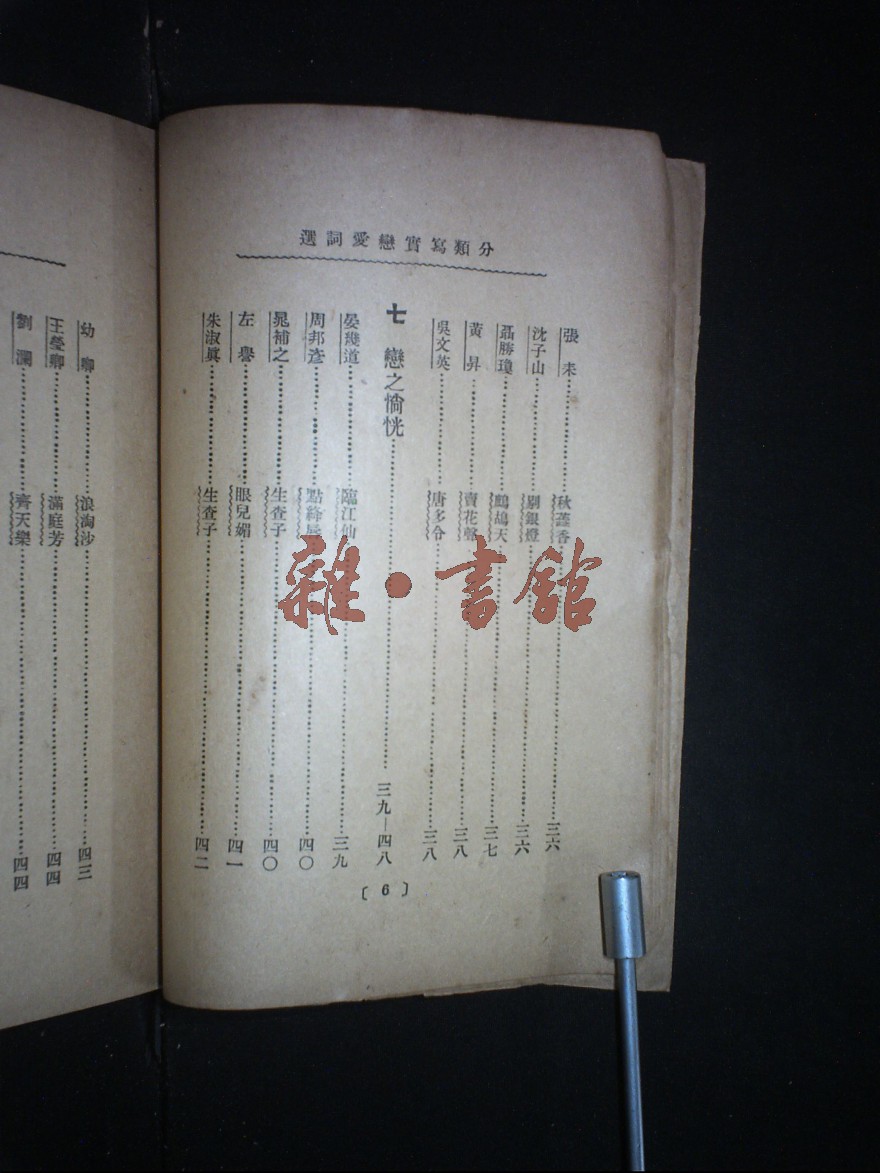 分類寫實戀愛詞選
張耒 秋蕊香 三六
沈子山 剔銀燈 三六
聶勝瓊 鷓鴣天 三七
黃昇 賣花聲 三八
吳文英 唐多令 三八
七 戀之惝恍 三九—四八
晏幾道 臨江仙 三九
周邦彥 點絳唇 四〇
晁補之 生查子 四〇
左譽 眼兒媚 四一
朱淑眞 生查子 四二
〔6〕
幼卿 浪淘沙 四三
王瑩卿 滿庭芳 四四
劉瀾 齊天樂 四四
雜·書館